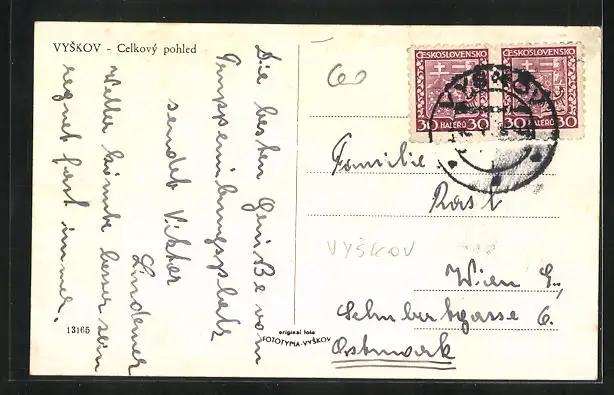 VYŠKOV - Celkový pohled
Die besten Grüße vom
Truppenübungsplatz
sendet Viktor
Lindemer
Wetter könnte besser sein
regnet fast immer.
13165
original foto
FOTOTYPIA-VYŠKOV
60
ČESKOSLOVENSKO
30 HALÉŘŮ 30
ČESKOSLOVENSKO
30 HALÉŘŮ 30
Familie
Rast
VYŠKOV
Wien
6.
Ostmark